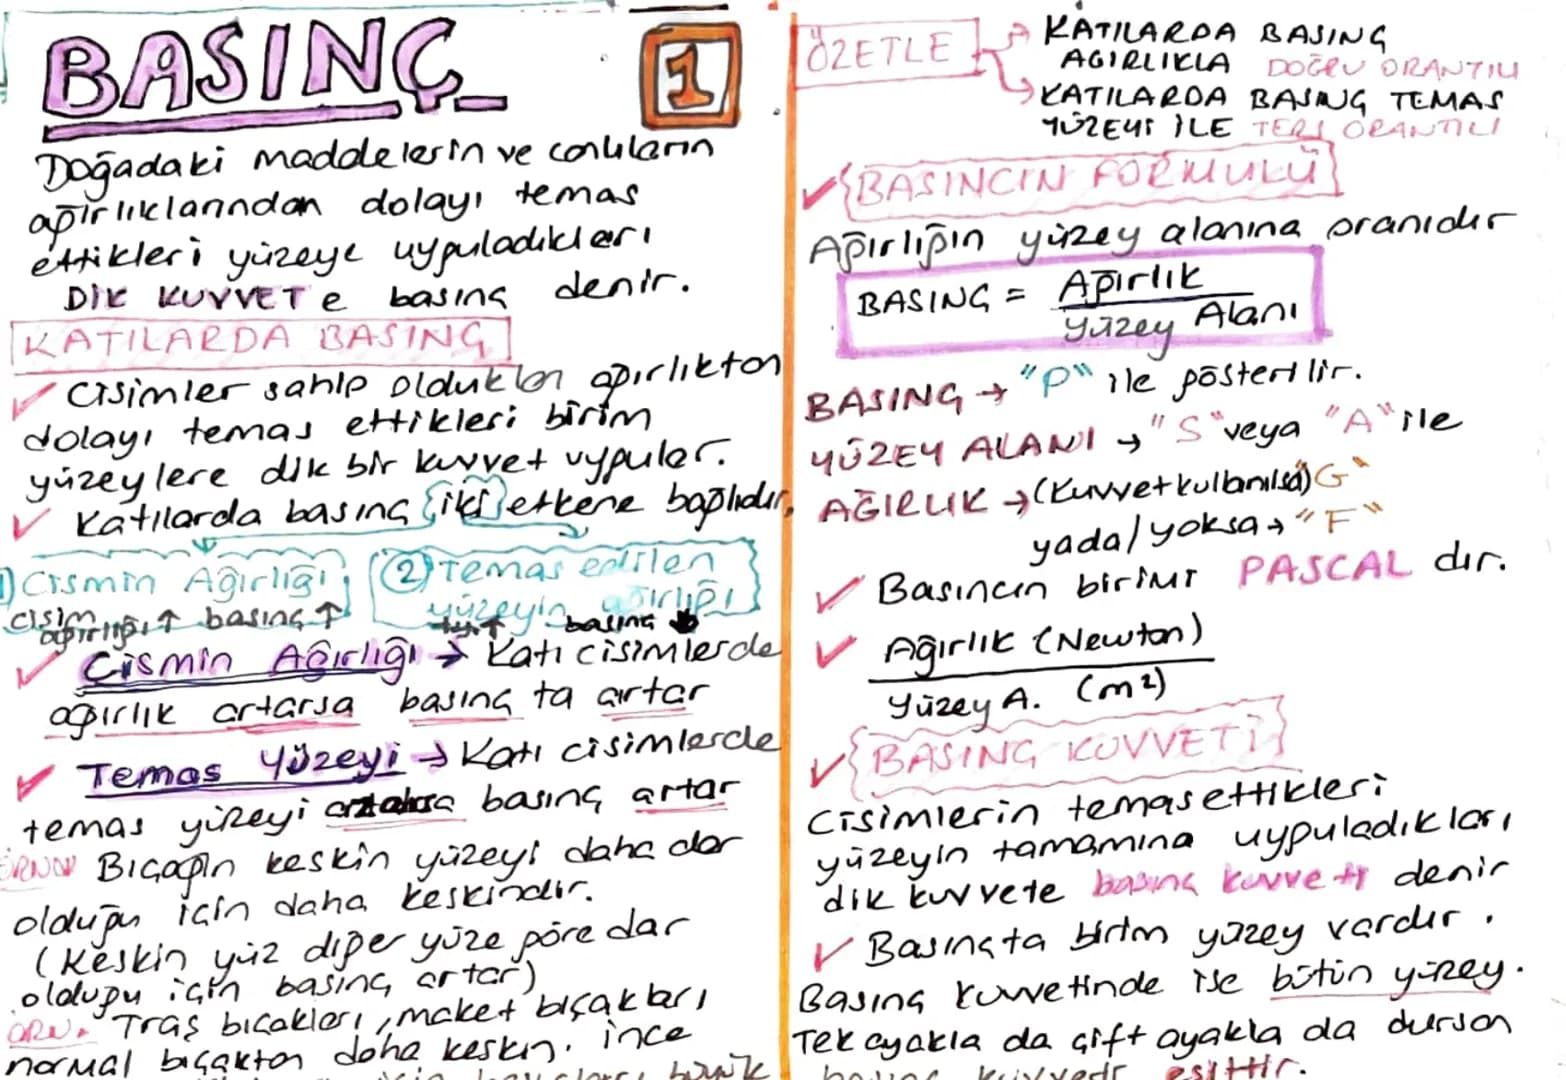 BASINÇ
1
Doğadaki maddelerin ve canlıların
ağırlıklarından dolayı temas
ettikleri yüzeye uyguladıkları
DİK KUVVET e basınç denir.
KATILARDA BASINÇ
Cisimler sahip oldukları ağırlıktan
dolayı temas ettikleri birim
yüzeylere dik bir kuvvet uygular.
Katılarda basınç iki etkene bağlıdır.
1) Cismin Ağırlığı
cisim ağırlığı ↑ basınç ↑
(2) Temas edilen
yüzeyin ağırlığı
↑ basınç ↓
Cismin Ağırlığı → Katı cisimlerde
ağırlık artarsa basınç ta artar
Temas Yüzeyi → Katı cisimlerde
temas yüzeyi basınç artar
ÖRN Bıçağın keskin yüzeyi daha dar
olduğu için daha keskindir.
(Keskin yüz diğer yüze göre dar
olduğu için basınç artar)
ÖRN. Tras bıcakları, maket bıçakları
normal bıçaktan daha keskin. İnce
ÖZETLE
KATILARDA BASINÇ
AĞIRLIKLA DOĞRU ORANTILI
KATILARDA BASINÇ TEMAS
YÜZEYİ İLE TERS ORANTILI
BASINCIN FORMÜLÜ
Ağırlığın yüzey alanına oranıdır
BASINÇ = Ağırlık
Yüzey Alanı
BASINÇ → "P" ile gösterilir.
YÜZEY ALANI → "S" veya "A" ile
AĞIRLIK → (Kuvvet kullanılsa) "G"
yada/yoksa → "F"
Basıncın birimi PASCAL dır.
Ağırlık (Newton)
Yüzey A. (m²)
BASINÇ KUVVETİ
Cisimlerin temas ettikleri
yüzeyin tamamına uyguladıkları
dik kuvvete basınç kuvveti denir
Basınçta birim yüzey vardır.
Basınç kuvvetinde ise bütün yüzey.
Tek ayakla da çift ayakla da dursan
basınç kuvveti eşittir.